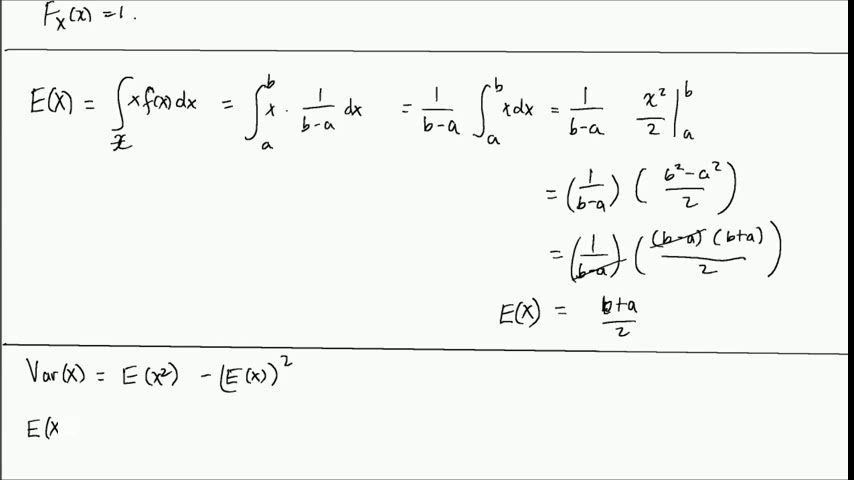 F_X(x) = 1.
E(X) = ∫_𝒳 x f(x) dx = ∫_a^b x · 1/(b-a) dx = 1/(b-a) ∫_a^b x dx = 1/(b-a) x²/2 |_a^b
= (1/(b-a)) ((b²-a²)/2)
= (1/(b-a)) ((b-a)(b+a)/2)
E(X) = (b+a)/2
Var(X) = E(X²) - (E(X))²
E(X